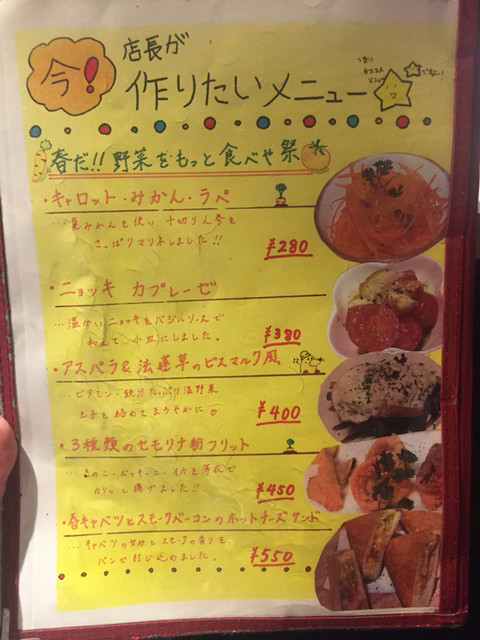 今!
店長が
作りたいメニュー
春だ!! 野菜をもっと食べや祭
・キャロット・みかん・ラペ
…夏みかんを使い千切り人参を
さっぱりマリネしました!!
¥280
・ニョッキ カプレーゼ
…温かいニョッキをバジルソースで
和えて、小皿にしました。
¥380
・アスパラ&法蓮草のビスマルク風
…ビタミン・鉄分たっぷり温野菜
玉子を絡めてまろやかに。
¥400
・3種類のセモリナ粉フリット
カリッと揚げました!!
¥450
・春キャベツとスモークベーコンのホットチーズサンド
…キャベツの甘味とスモークの香りを
パンで封じ込めました。
¥550